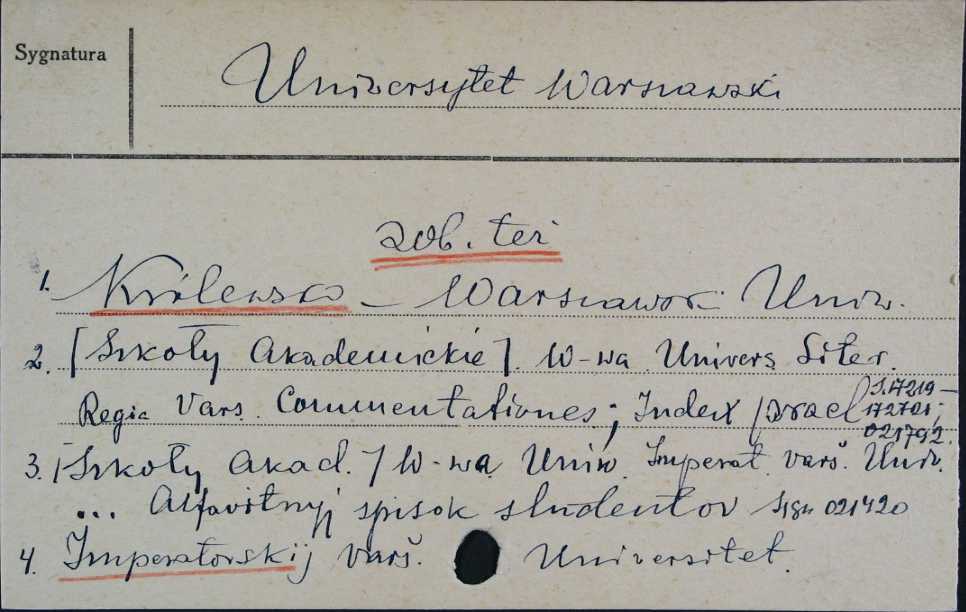 Sygnatura
Uniwersytet Warszawski
zob. też
1. Królewsko - Warszawski Uniw.
2. [Szkoły Akademickie] W-wa Univers. Liter.
Regia Vars. Commentationes; Index prael.
S. 17219-
172721;
021792.
3. [Szkoły akad.] W-wa Uniw. Imperat. Varš. Univ.
... Alfavitnyj spisok studentov sygn 021420
4. Imperatorskij Varš. Universitet.